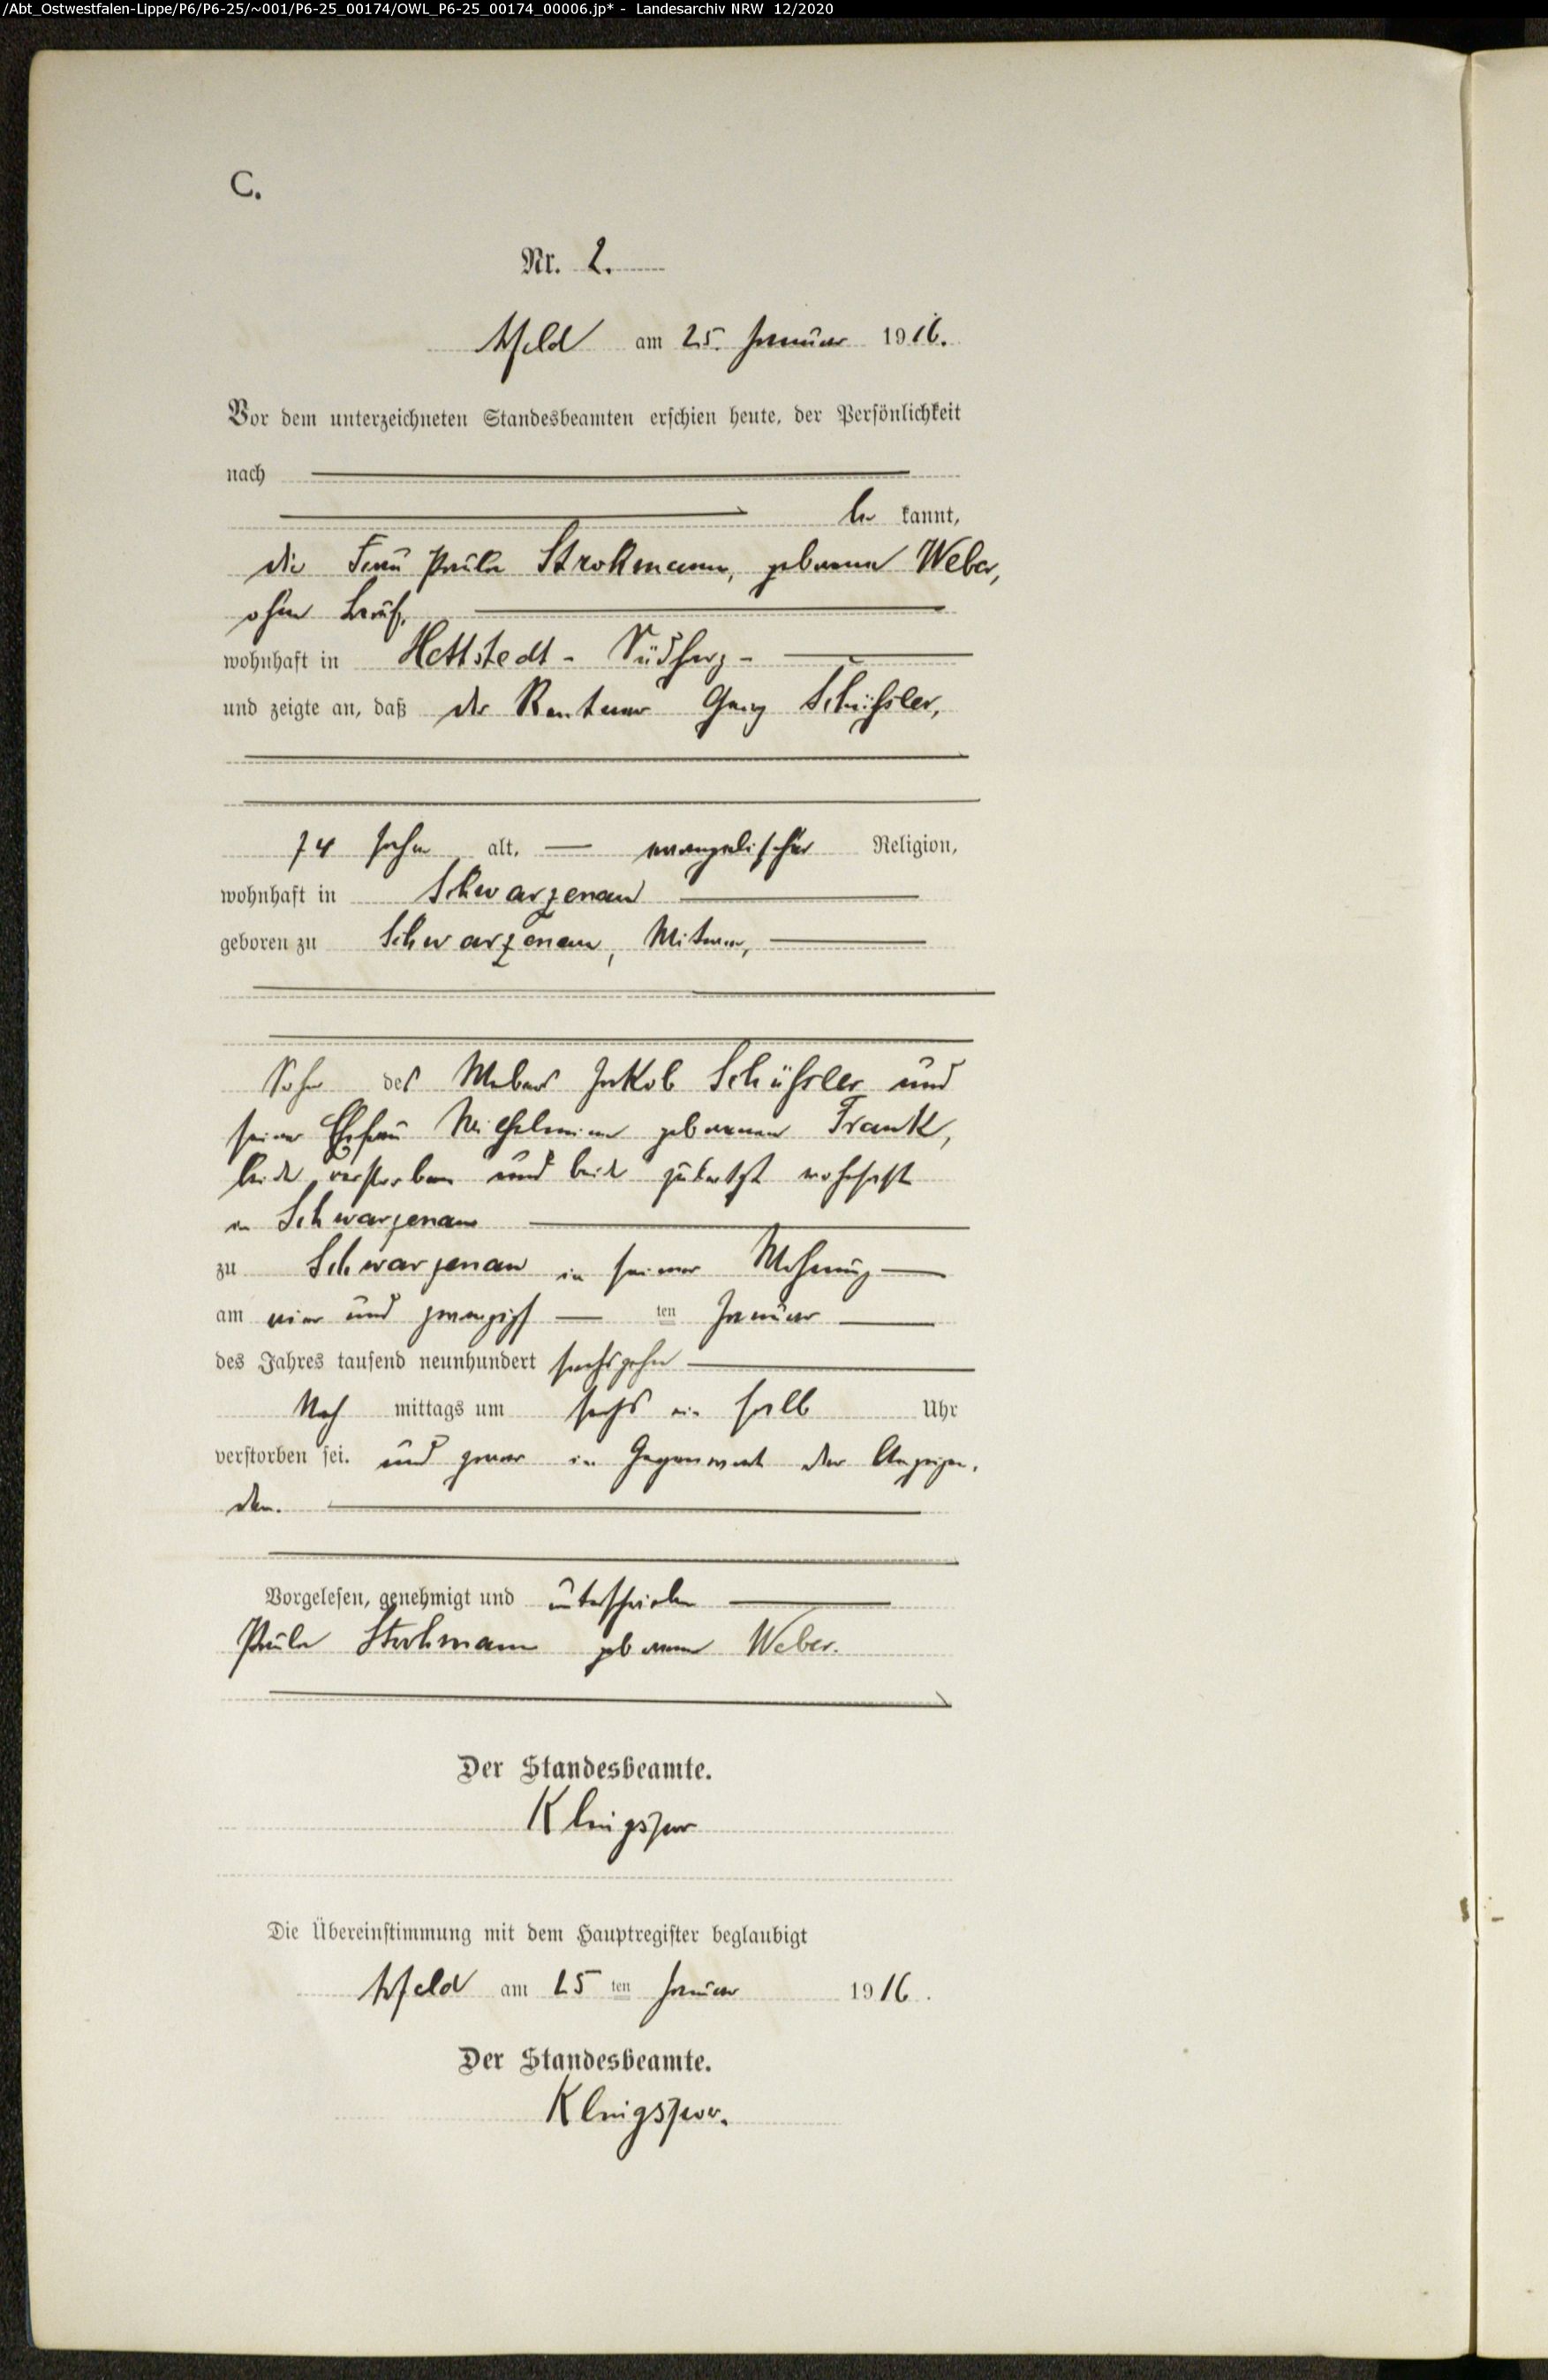 /Abt_Ostwestfalen-Lippe/P6/P6-25/~001/P6-25_00174/OWL_P6-25_00174_00006.jp* - Landesarchiv NRW 12/2020
C.
Nr. 2.
am 25. Januar 1916.
Vor dem unterzeichneten Standesbeamten erschien heute, der Persönlichkeit
nach
be kannt,
die Frau Paula Strohmann, geborene Weber,
ohne Beruf,
wohnhaft in Hettstedt - Südharz -
und zeigte an, daß der Rentner Georg Schüßler,
74 Jahre alt, evangelischer Religion,
wohnhaft in Schwarzenau
geboren zu Schwarzenau, Witwer,
Sohn des Webers Jakob Schüßler und
seiner Ehefrau Wilhelmine geborenen Frank,
beide verstorben und beide zuletzt wohnhaft
in Schwarzenau
zu Schwarzenau in seiner Wohnung
am vier und zwanzigs ten Januar
des Jahres tausend neunhundert sechszehn
Nach mittags um sechs ein halb Uhr
verstorben sei. und zwar in Gegenwart der Anzeigen-
den.
Vorgelesen, genehmigt und unterschrieben
Paula Strohmann geborene Weber.
Der Standesbeamte.
Klingspor
Die Übereinstimmung mit dem Hauptregister beglaubigt
am 25 ten Januar 1916.
Der Standesbeamte.
Klingspor.